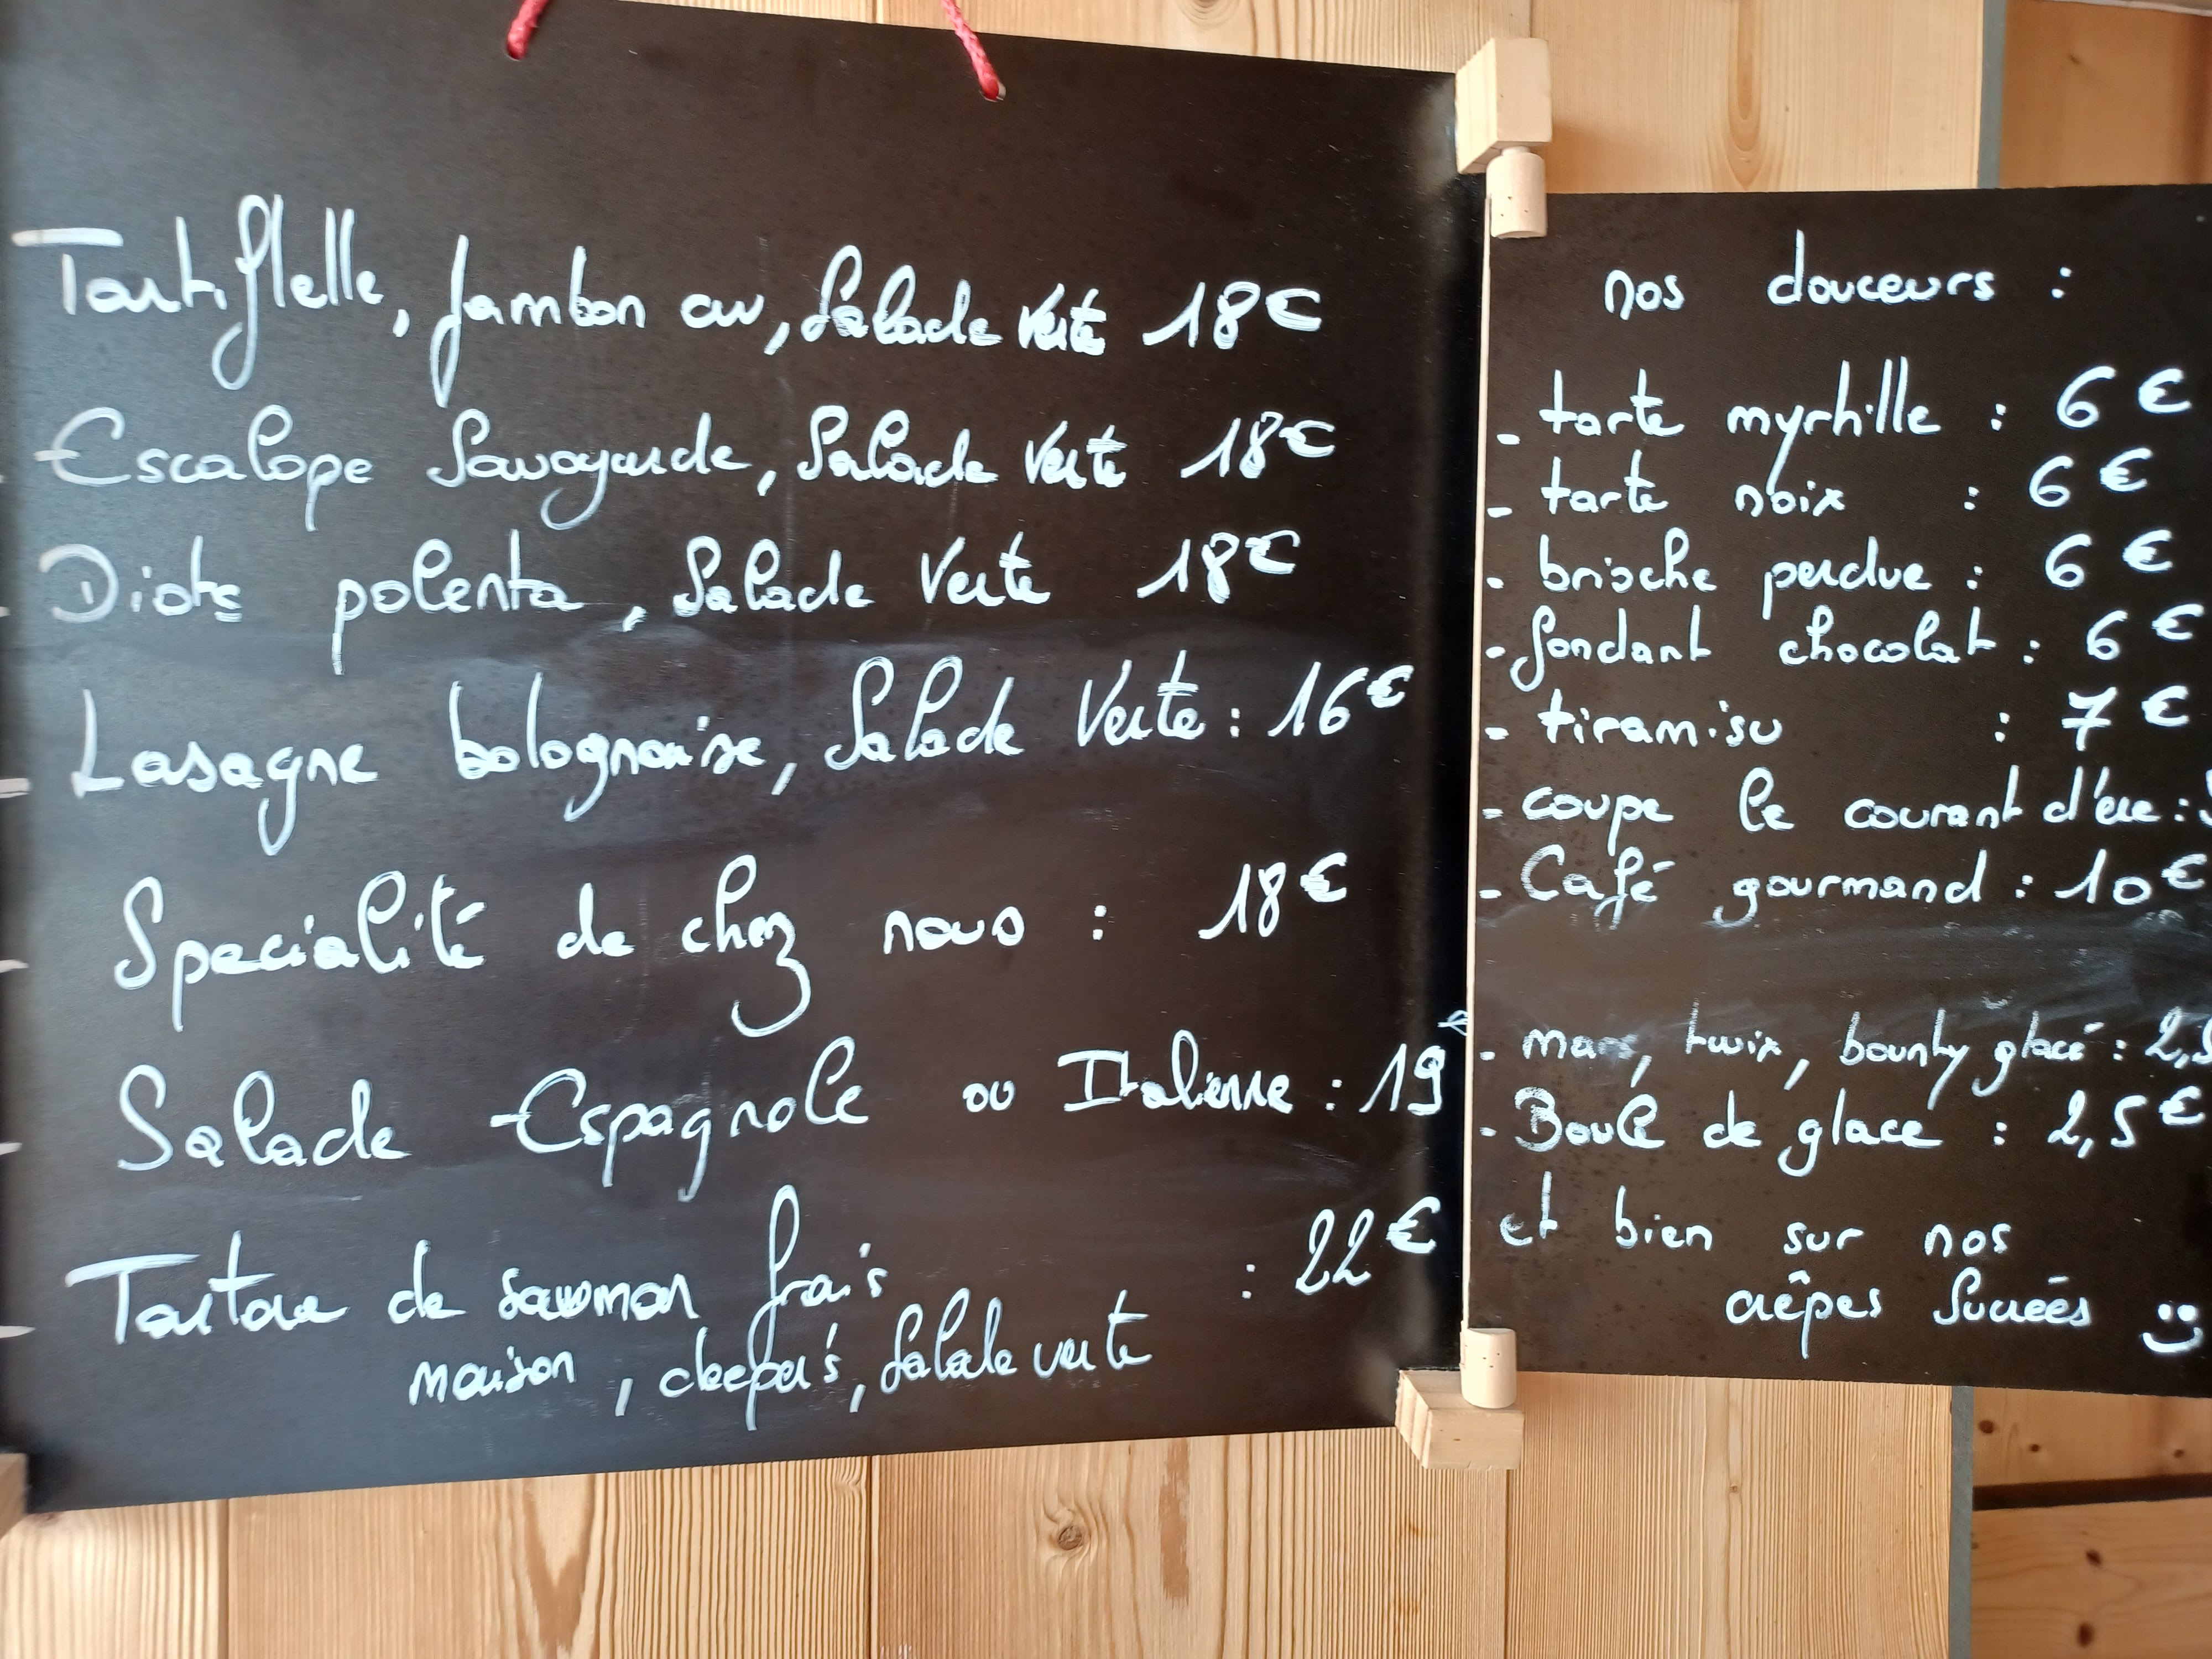 Tartiflette, jambon cru, Salade Verte 18€
Escalope Savoyarde, Salade Verte 18€
Diots polenta, Salade Verte 18€
Lasagne bolognaise, Salade Verte : 16€
Specialité de chez nous : 18€
Salade Espagnole ou Italienne : 19
Tartare de saumon frais : 22€
maison, , Salade verte
nos douceurs :
- tarte myrtille : 6€
- tarte noix : 6€
- brioche perdue : 6€
- fondant chocolat : 6€
- tiramisu : 7€
- coupe le courant d'ère :
- Café gourmand : 10€
- mars, twix, bounty glacé : 2,5
- Boule de glace : 2,5€
et bien sur nos
crêpes Sucrées